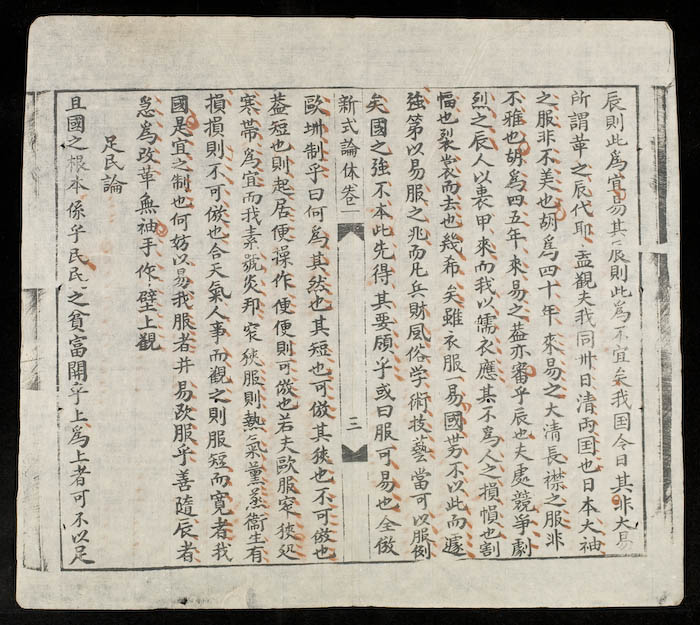 辰則此為宜易其辰則此為不宜矣我国今日其非大易
所謂革之辰代耶盖觀夫我同卅日清両国也日本大袖
之服非不美也胡為四十年來易之大清長襟之服非
不雅也胡為四五年來易之盖亦審乎辰也夫處競爭劇
烈之辰人以衷甲來而我以儒衣應其不為人之損愪也割
幅也裂裳而去也幾希矣雖衣服一易國势不以此而遽
強第以易服之兆而凡兵財風俗学術技藝當可以服例
矣國之強不本此先得其要領乎或曰服可易也全倣
新式論体卷一
三
歐洲制乎曰何為其然也其短也可倣其狹也不可倣也
盖短也則起居便操作便便則可倣也若夫歐服窄狹処
寒帶為宜而我素號炎邦窄狹服則熱氣薰蒸衛生有
損損則不可倣也合天氣人事而觀之則服短而寬者我
國是宜之制也何妨以易我服者并易政服乎善隨辰者
急為改革無袖手作壁上觀
足民論
且國之根本係乎民民之貧富開乎上為上者可不以足